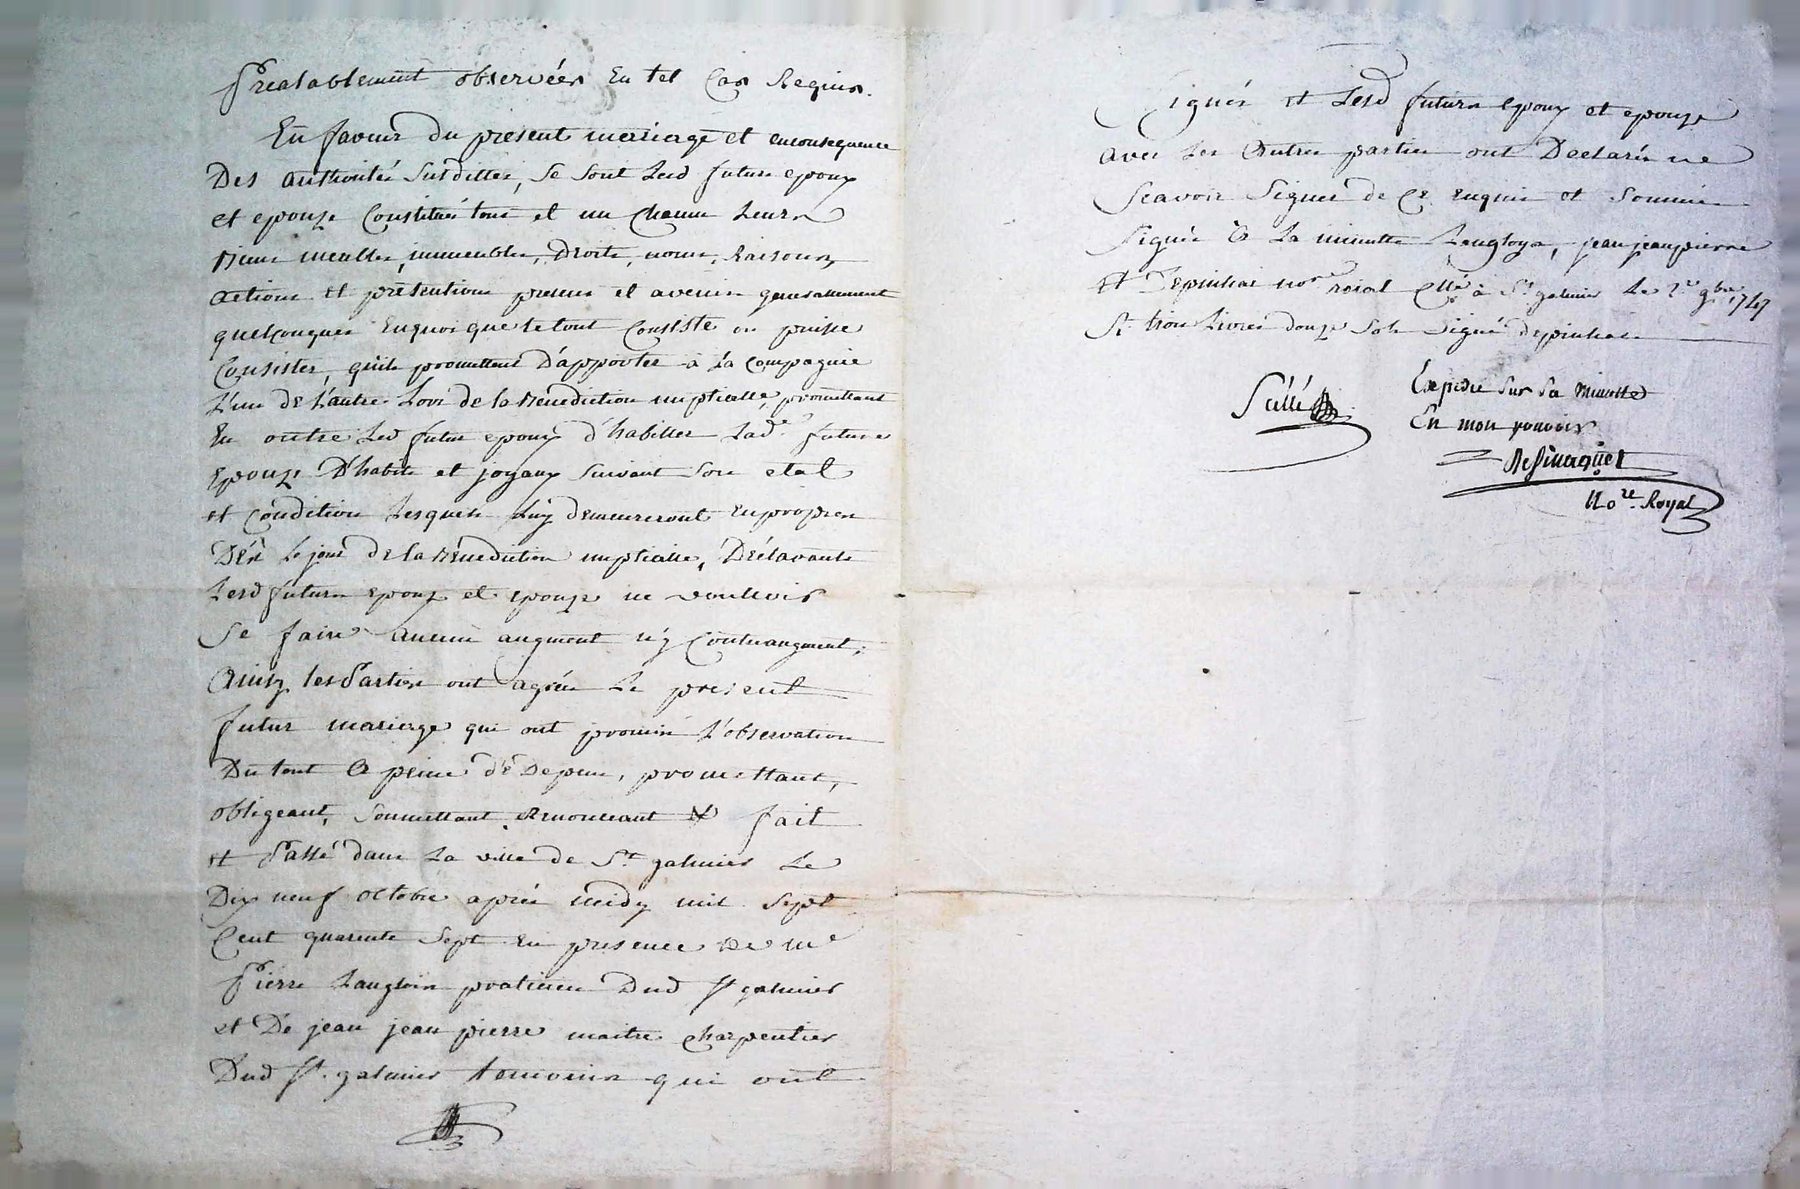 Prealablement observées En tel Cas Requis.
En faveur du present mariage et enconsequence
Des authorités Susdittes, Se Sont Lesd futurs epoux
et epouze Constitués tous et un Chacun Leurs
Biens meubles, immeubles, Droits, noms, Raisons,
actions et prétentions presens et avenir generallement
quelconques Enquoi que le tout Consiste ou puisse
Consister, qu'ils promettent D'apporter à La Compagnie
L'un De L'autre Lors de la Bénédiction nuptialle, promettant
En outre Led futur epoux d'habiller Lade future
Epouze D'habits et joyaux Suivant Son etat
et Condition Lesquels Luy demeureront En propres
Dés Le jour de la Bénédiction nuptialle, Déclarants
Lesd futurs epoux et epouze ne vouloir
Se faire aucun augment n'y Contreaugment,
Ainsy les Parties ont agréés Le present
futur mariage qui ont promis L'observation
Du tout a peine de Depens, promettant,
obligeant, Soumettant, Renonceant & fait
et Passé dans La ville de St galmier Le
Dix neuf octobre aprés midy mil Sept
Cent quarente Sept En presence De me
Pierre Langlois praticien Dud St galmier
et De jean jean pierre maitre charpentier
Dud St. galmier temoins qui ont
Signés et Lesd futurs epoux et epouze
avec Les Autres parties ont Declarés ne
Scavoir Signer de Ce Enquis et Sommés
Signé a La minutte Langloys, jean jeanpierre
et Depinhac nore roial Cllé à St. galmier Le 2e 9bre 1747
R. trois Livres douze Sols Signé depinhac
Scellé
Expedié Sur Sa Minutte
En mon pouvoir
No.re Royal